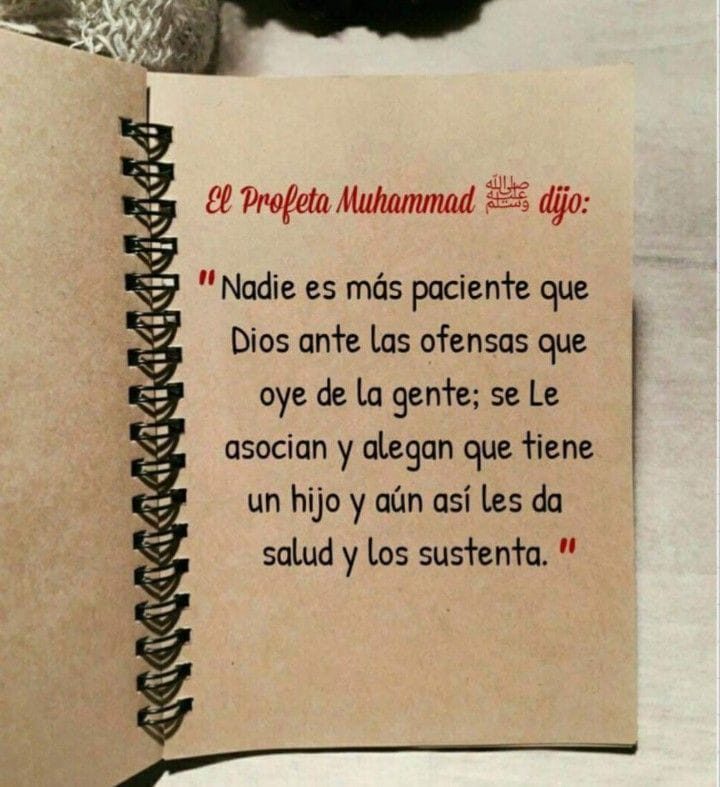 El Profeta Muhammad ﷺ dijo:
"Nadie es más paciente que
Dios ante las ofensas que
oye de la gente; se Le
asocian y alegan que tiene
un hijo y aún así les da
salud y los sustenta. "